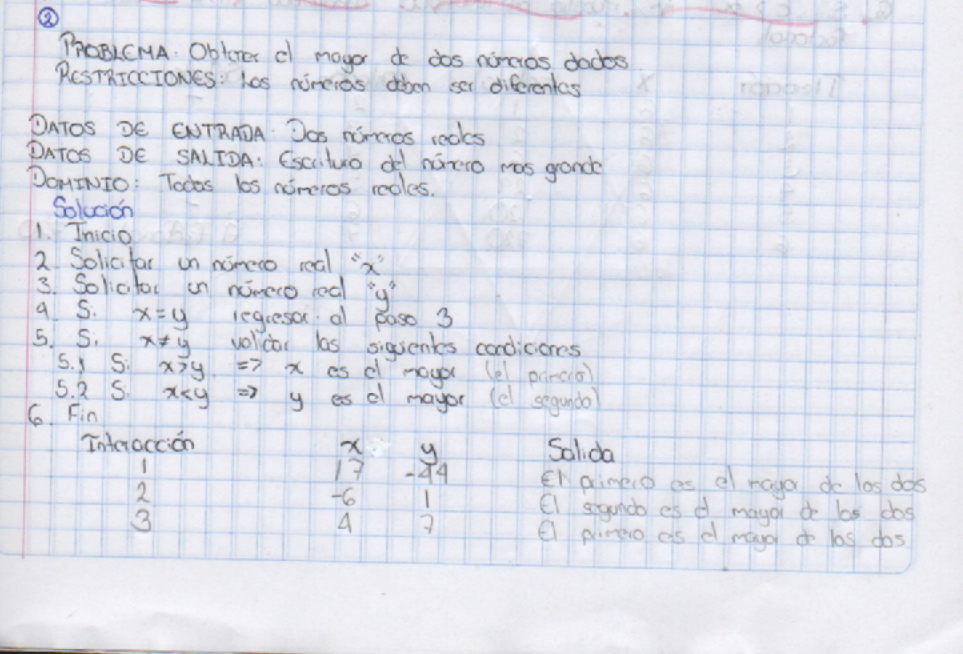 2
PROBLEMA: Obtener el mayor de dos números dados
RESTRICCIONES: Los números deben ser diferentes
DATOS DE ENTRADA: Dos números reales
DATOS DE SALIDA: Escritura del número mas grande
DOMINIO: Todos los números reales.
Solución
1. Inicio
2. Solicitar un número real "x"
3. Solicitar un número real "y"
4. Si x=y regresar al paso 3
5. Si x≠y validar las siguientes condiciones
5.1 Si x>y => x es el mayor (el primero)
5.2 Si x<y => y es el mayor (el segundo)
6. Fin
Interacción x y Salida
1 17 -44 El primero es el mayor de los dos
2 -6 1 El segundo es el mayor de los dos
3 4 7 El primero es el mayor de los dos